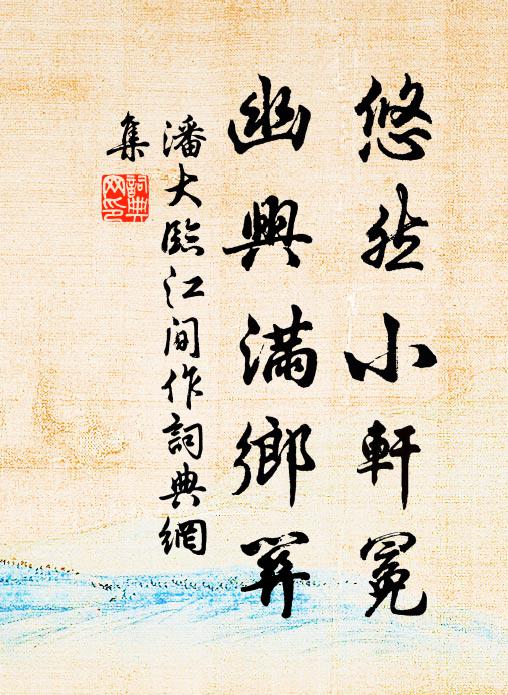 悠然小軒冕
幽興滿鄉關
潘大臨江间作詞典網
集
詞典
网印